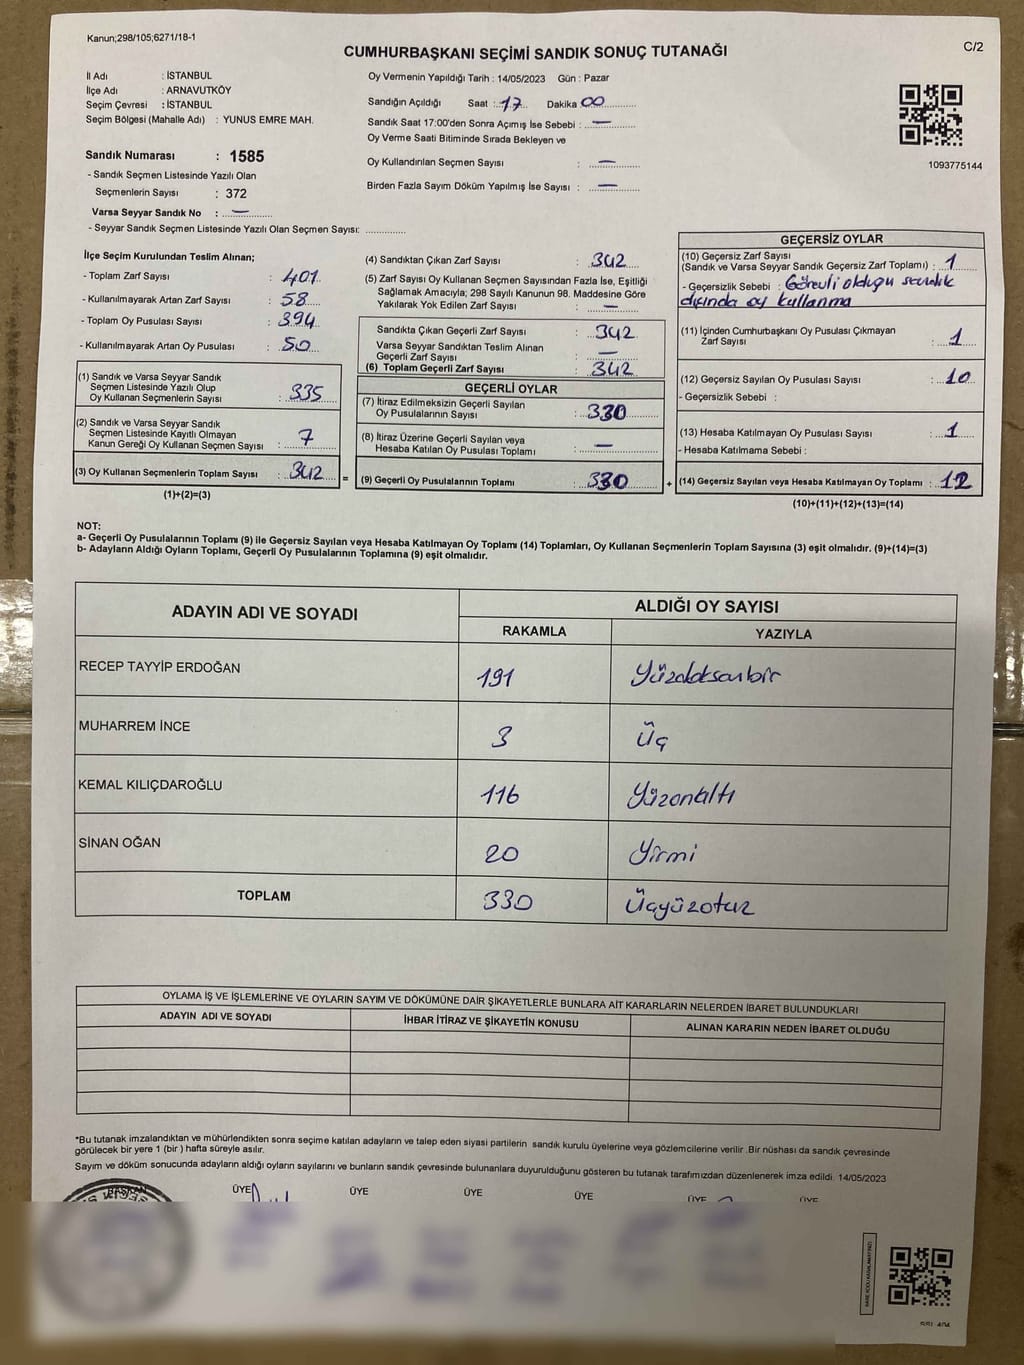 Kanun;298/105;6271/18-1
CUMHURBAŞKANI SEÇİMİ SANDIK SONUÇ TUTANAĞI
C/2
İl Adı : İSTANBUL
İlçe Adı : ARNAVUTKÖY
Seçim Çevresi : İSTANBUL
Seçim Bölgesi (Mahalle Adı) : YUNUS EMRE MAH.
Sandık Numarası : 1585
- Sandık Seçmen Listesinde Yazılı Olan
Seçmenlerin Sayısı : 372
Varsa Seyyar Sandık No : —
- Seyyar Sandık Seçmen Listesinde Yazılı Olan Seçmen Sayısı: ............
Oy Vermenin Yapıldığı Tarih : 14/05/2023 Gün : Pazar
Sandığın Açıldığı Saat : 17 Dakika 00
Sandık Saat 17:00'den Sonra Açımış İse Sebebi : —
Oy Verme Saati Bitiminde Sırada Bekleyen ve
Oy Kullandırılan Seçmen Sayısı : —
Birden Fazla Sayım Döküm Yapılmış İse Sayısı : —
1093775144
İlçe Seçim Kurulundan Teslim Alınan;
- Toplam Zarf Sayısı : 401
- Kullanılmayarak Artan Zarf Sayısı : 58
- Toplam Oy Pusulası Sayısı : 394
- Kullanılmayarak Artan Oy Pusulası : 50
(1) Sandık ve Varsa Seyyar Sandık
Seçmen Listesinde Yazılı Olup
Oy Kullanan Seçmenlerin Sayısı : 335
(2) Sandık ve Varsa Seyyar Sandık
Seçmen Listesinde Kayıtlı Olmayan
Kanun Gereği Oy Kullanan Seçmen Sayısı : 7
(3) Oy Kullanan Seçmenlerin Toplam Sayısı : 342 =
(1)+(2)=(3)
(4) Sandıktan Çıkan Zarf Sayısı : 342
(5) Zarf Sayısı Oy Kullanan Seçmen Sayısından Fazla İse, Eşitliği
Sağlamak Amacıyla; 298 Sayılı Kanunun 98. Maddesine Göre
Yakılarak Yok Edilen Zarf Sayısı : —
Sandıkta Çıkan Geçerli Zarf Sayısı : 342
Varsa Seyyar Sandıktan Teslim Alınan
Geçerli Zarf Sayısı : —
(6) Toplam Geçerli Zarf Sayısı : 342
GEÇERLİ OYLAR
(7) İtiraz Edilmeksizin Geçerli Sayılan
Oy Pusulalarının Sayısı : 330
(8) İtiraz Üzerine Geçerli Sayılan veya
Hesaba Katılan Oy Pusulası Toplamı : —
(9) Geçerli Oy Pusulalarının Toplamı : 330 +
GEÇERSİZ OYLAR
(10) Geçersiz Zarf Sayısı
(Sandık ve Varsa Seyyar Sandık Geçersiz Zarf Toplamı) : 1
- Geçersizlik Sebebi : Görevli olduğu sandık
dışında oy kullanma
(11) İçinden Cumhurbaşkanı Oy Pusulası Çıkmayan
Zarf Sayısı : 1
(12) Geçersiz Sayılan Oy Pusulası Sayısı : 10
- Geçersizlik Sebebi :
(13) Hesaba Katılmayan Oy Pusulası Sayısı : 1
- Hesaba Katılmama Sebebi :
(14) Geçersiz Sayılan veya Hesaba Katılmayan Oy Toplamı : 12
(10)+(11)+(12)+(13)=(14)
NOT:
a- Geçerli Oy Pusulalarının Toplamı (9) ile Geçersiz Sayılan veya Hesaba Katılmayan Oy Toplamı (14) Toplamları, Oy Kullanan Seçmenlerin Toplam Sayısına (3) eşit olmalıdır. (9)+(14)=(3)
b- Adayların Aldığı Oyların Toplamı, Geçerli Oy Pusulalarının Toplamına (9) eşit olmalıdır.
ADAYIN ADI VE SOYADI ALDIĞI OY SAYISI
RAKAMLA YAZIYLA
RECEP TAYYİP ERDOĞAN 191 Yüzdoksanbir
MUHARREM İNCE 3 Üç
KEMAL KILIÇDAROĞLU 116 Yüzonaltı
SİNAN OĞAN 20 Yirmi
TOPLAM 330 Üçyüzotuz
OYLAMA İŞ VE İŞLEMLERİNE VE OYLARIN SAYIM VE DÖKÜMÜNE DAİR ŞİKAYETLERLE BUNLARA AİT KARARLARIN NELERDEN İBARET BULUNDUKLARI
ADAYIN ADI VE SOYADI İHBAR İTİRAZ VE ŞİKAYETİN KONUSU ALINAN KARARIN NEDEN İBARET OLDUĞU
*Bu tutanak imzalandıktan ve mühürlendikten sonra seçime katılan adayların ve talep eden siyasi partilerin sandık kurulu üyelerine veya gözlemcilerine verilir .Bir nüshası da sandık çevresinde
görülecek bir yere 1 (bir ) hafta süreyle asılır.
Sayım ve döküm sonucunda adayların aldığı oyların sayılarını ve bunların sandık çevresinde bulunanlara duyurulduğunu gösteren bu tutanak tarafımızdan düzenlenerek imza edildi. 14/05/2023
BAŞKAN ÜYE ÜYE ÜYE ÜYE ÜYE ÜYE